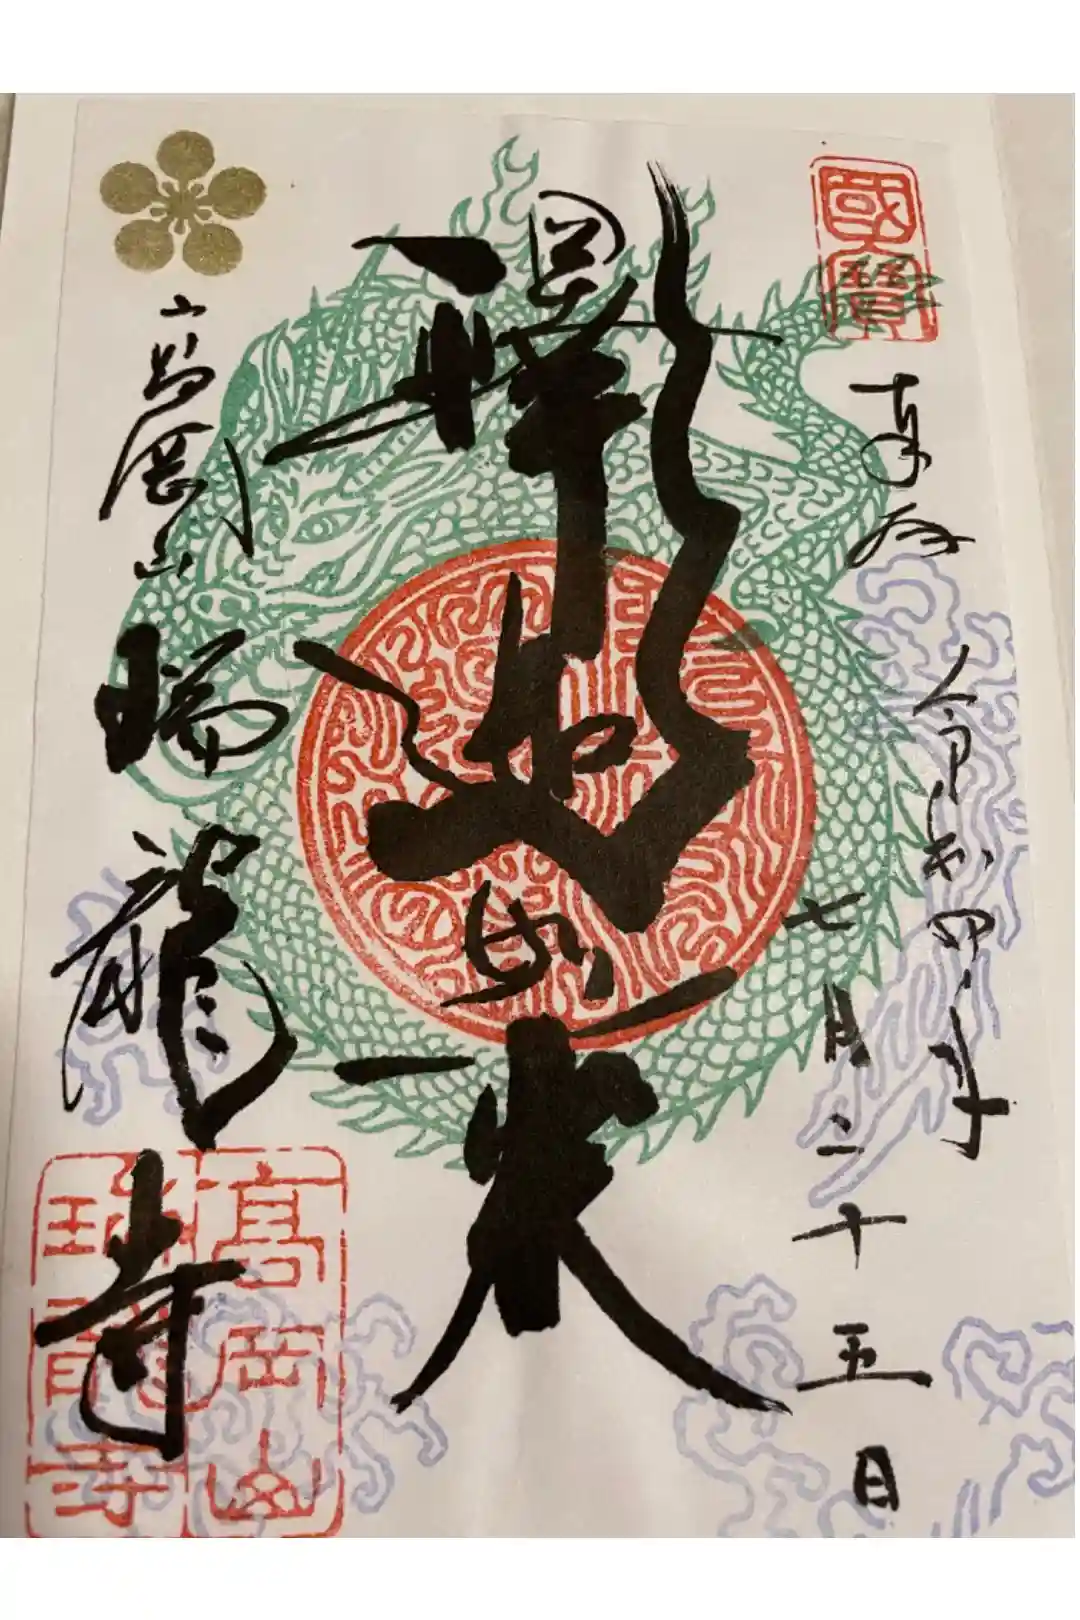 國寶
奉拝
令和四年
七月二十五日
釋迦如来
高岡山瑞龍寺
高岡山
瑞龍寺